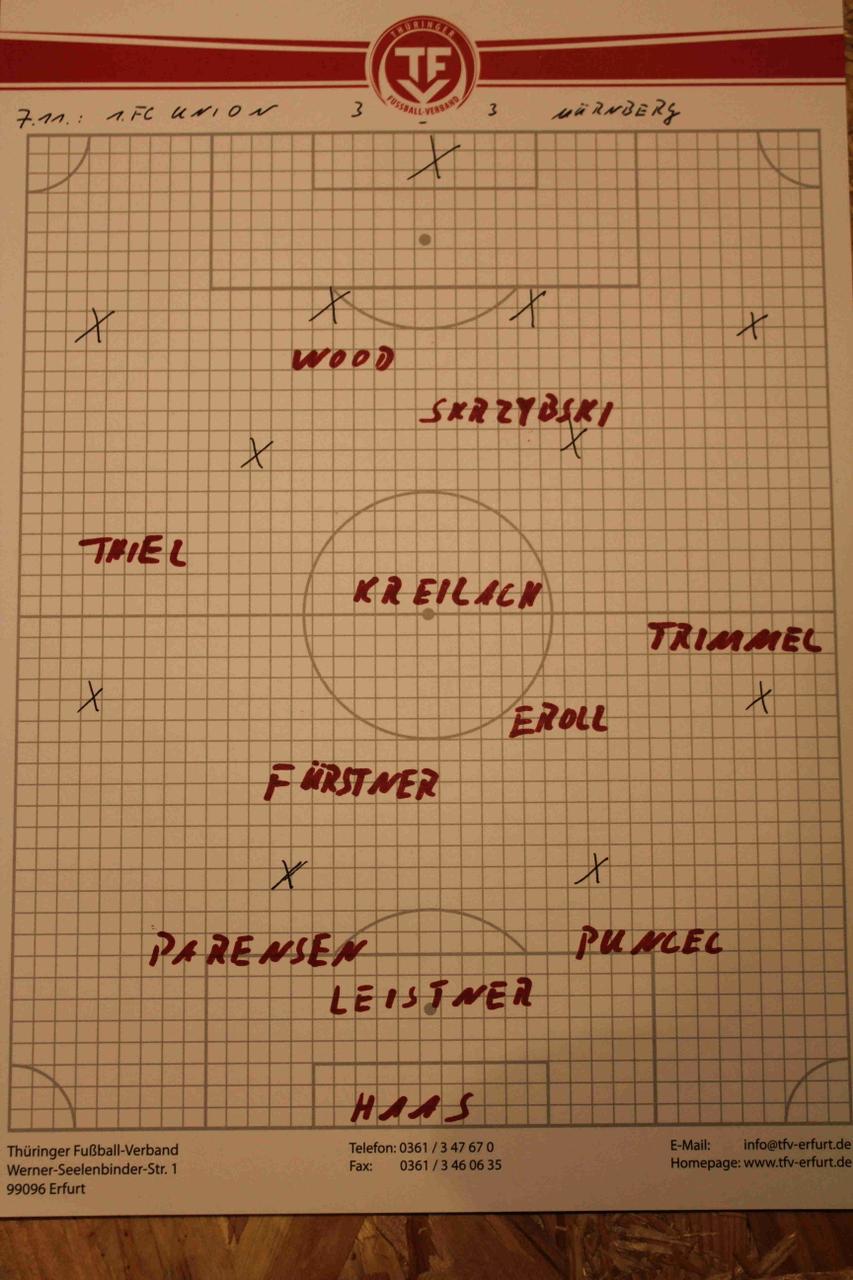 THÜRINGER
TF
FUSSBALL-VERBAND
7.11.: 1.FC UNION 3 - 3 NÜRNBERG
X
X X X X
WOOD
SKRZYBSKI
X X
THIEL
KREILACH
TRIMMEL
X X
EROLL
FÜRSTNER
X X
PARENSEN PUNCEC
LEISTNER
HAAS
Thüringer Fußball-Verband
Werner-Seelenbinder-Str. 1
99096 Erfurt
Telefon: 0361 / 3 47 67 0
Fax: 0361 / 3 46 06 35
E-Mail: info@tfv-erfurt.de
Homepage: www.tfv-erfurt.de